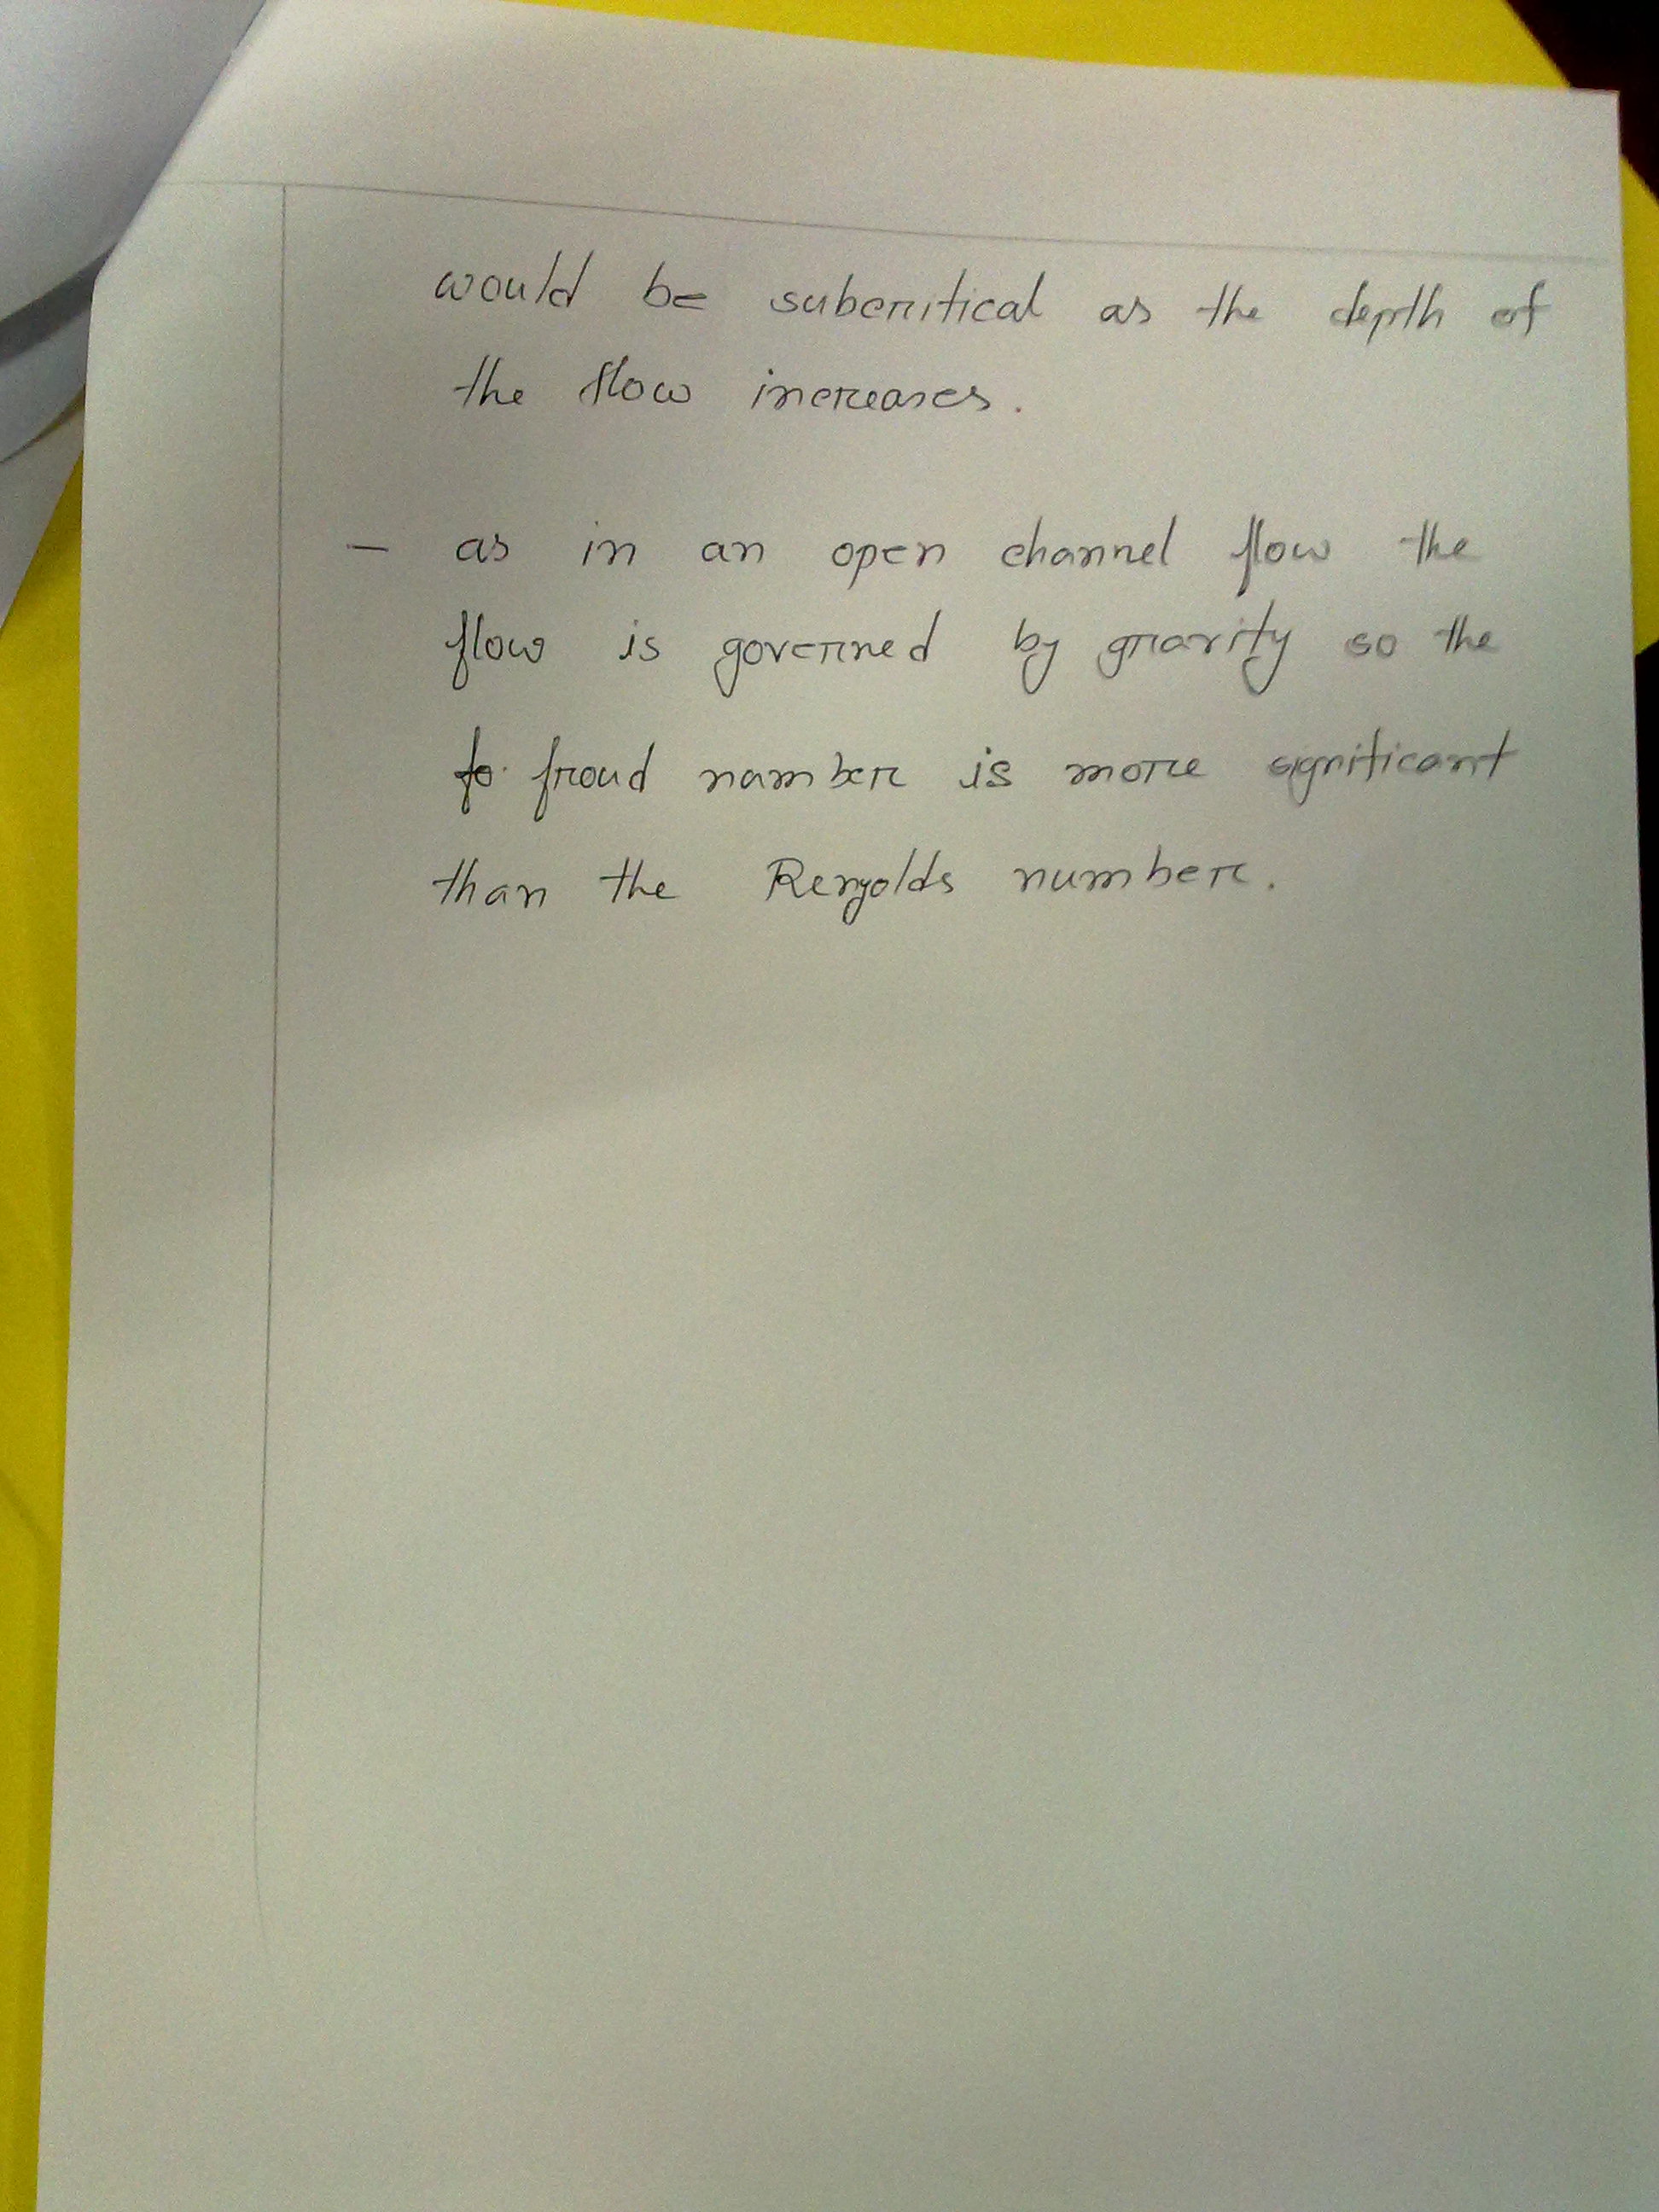 would be subcritical as the depth of
the flow increases.
— as in an open channel flow the
flow is governed by gravity so the
froud number is more significant
than the Renyolds number.